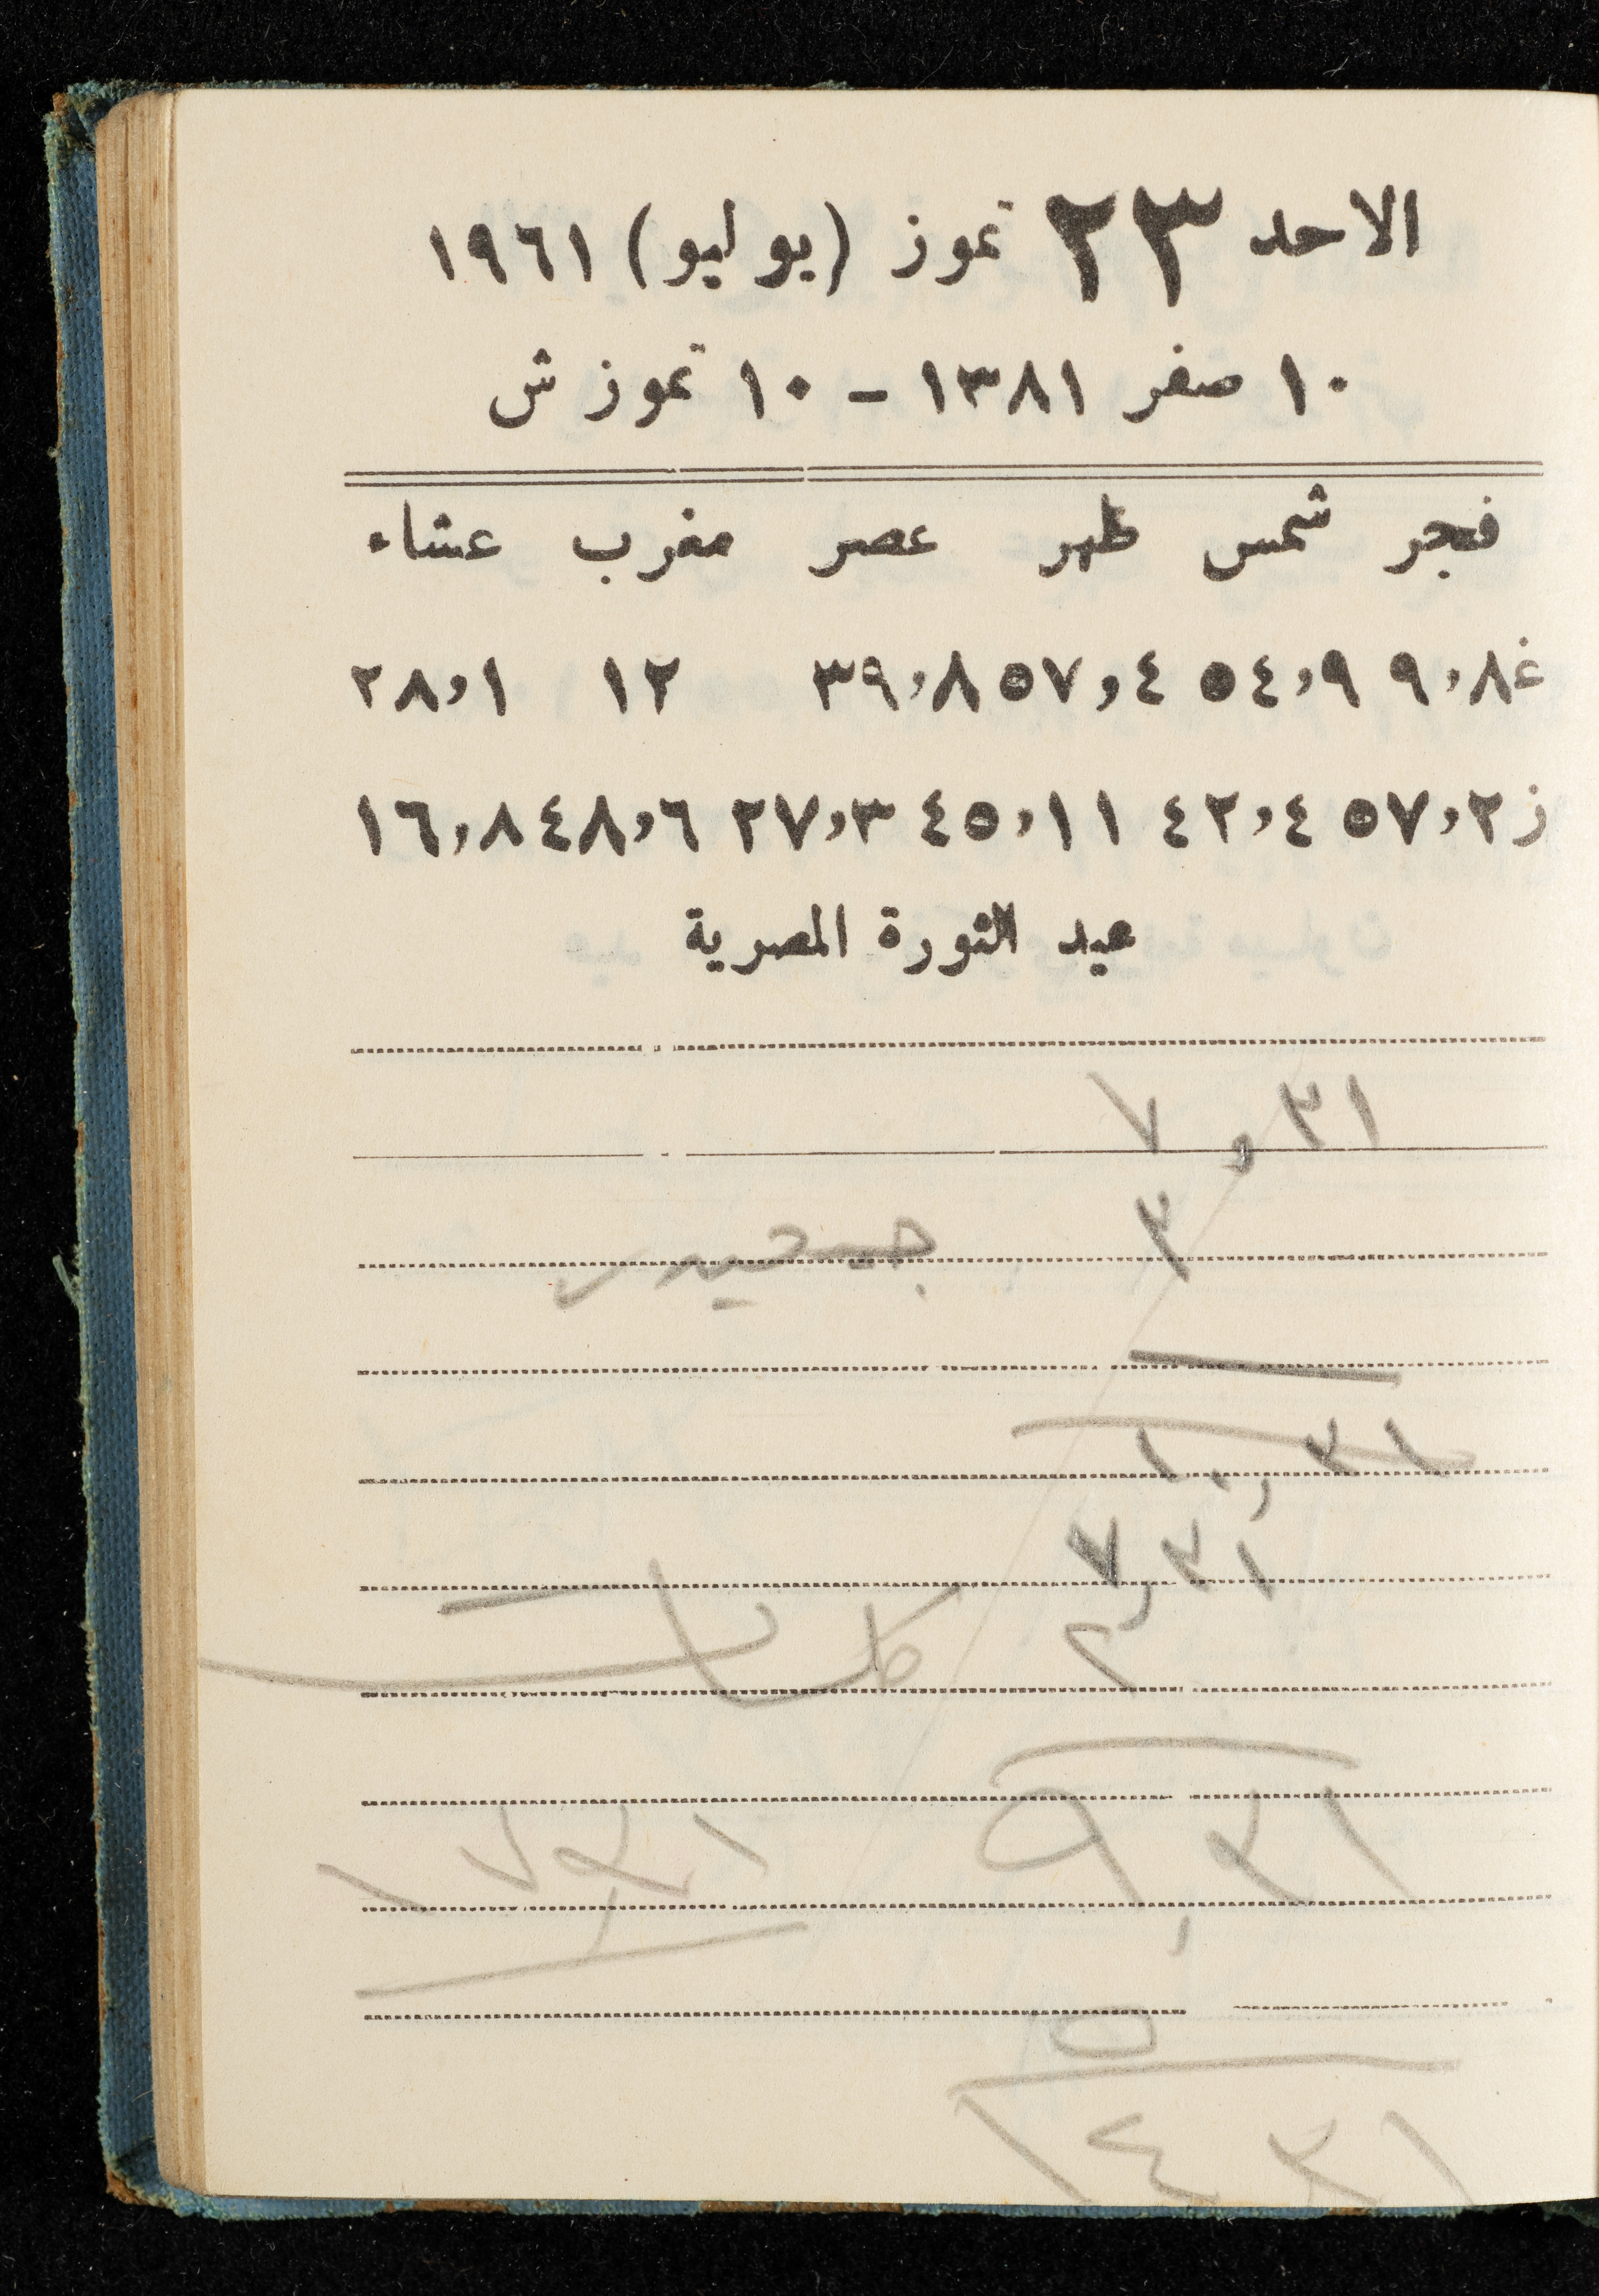 الاحد ٢٣ تموز (يوليو) ١٩٦١
١٠ صفر ١٣٨١ - ١٠ تموز ش
فجر شمس ظهر عصر مغرب عشاء
غ ٩,٨ ٥٤,٩ ٥٧,٤ ٣٩,٨ ١٢ ٢٨,١
ز ٥٧,٢ ٤٢,٤ ٤٥,١١ ٢٧,٣ ٤٨,٦ ١٦,٨
عيد الثورة المصرية
٧,٣١
٣
١٠,٣١
٧,٣١
٢
٩,٣١
٥
١٤٣١